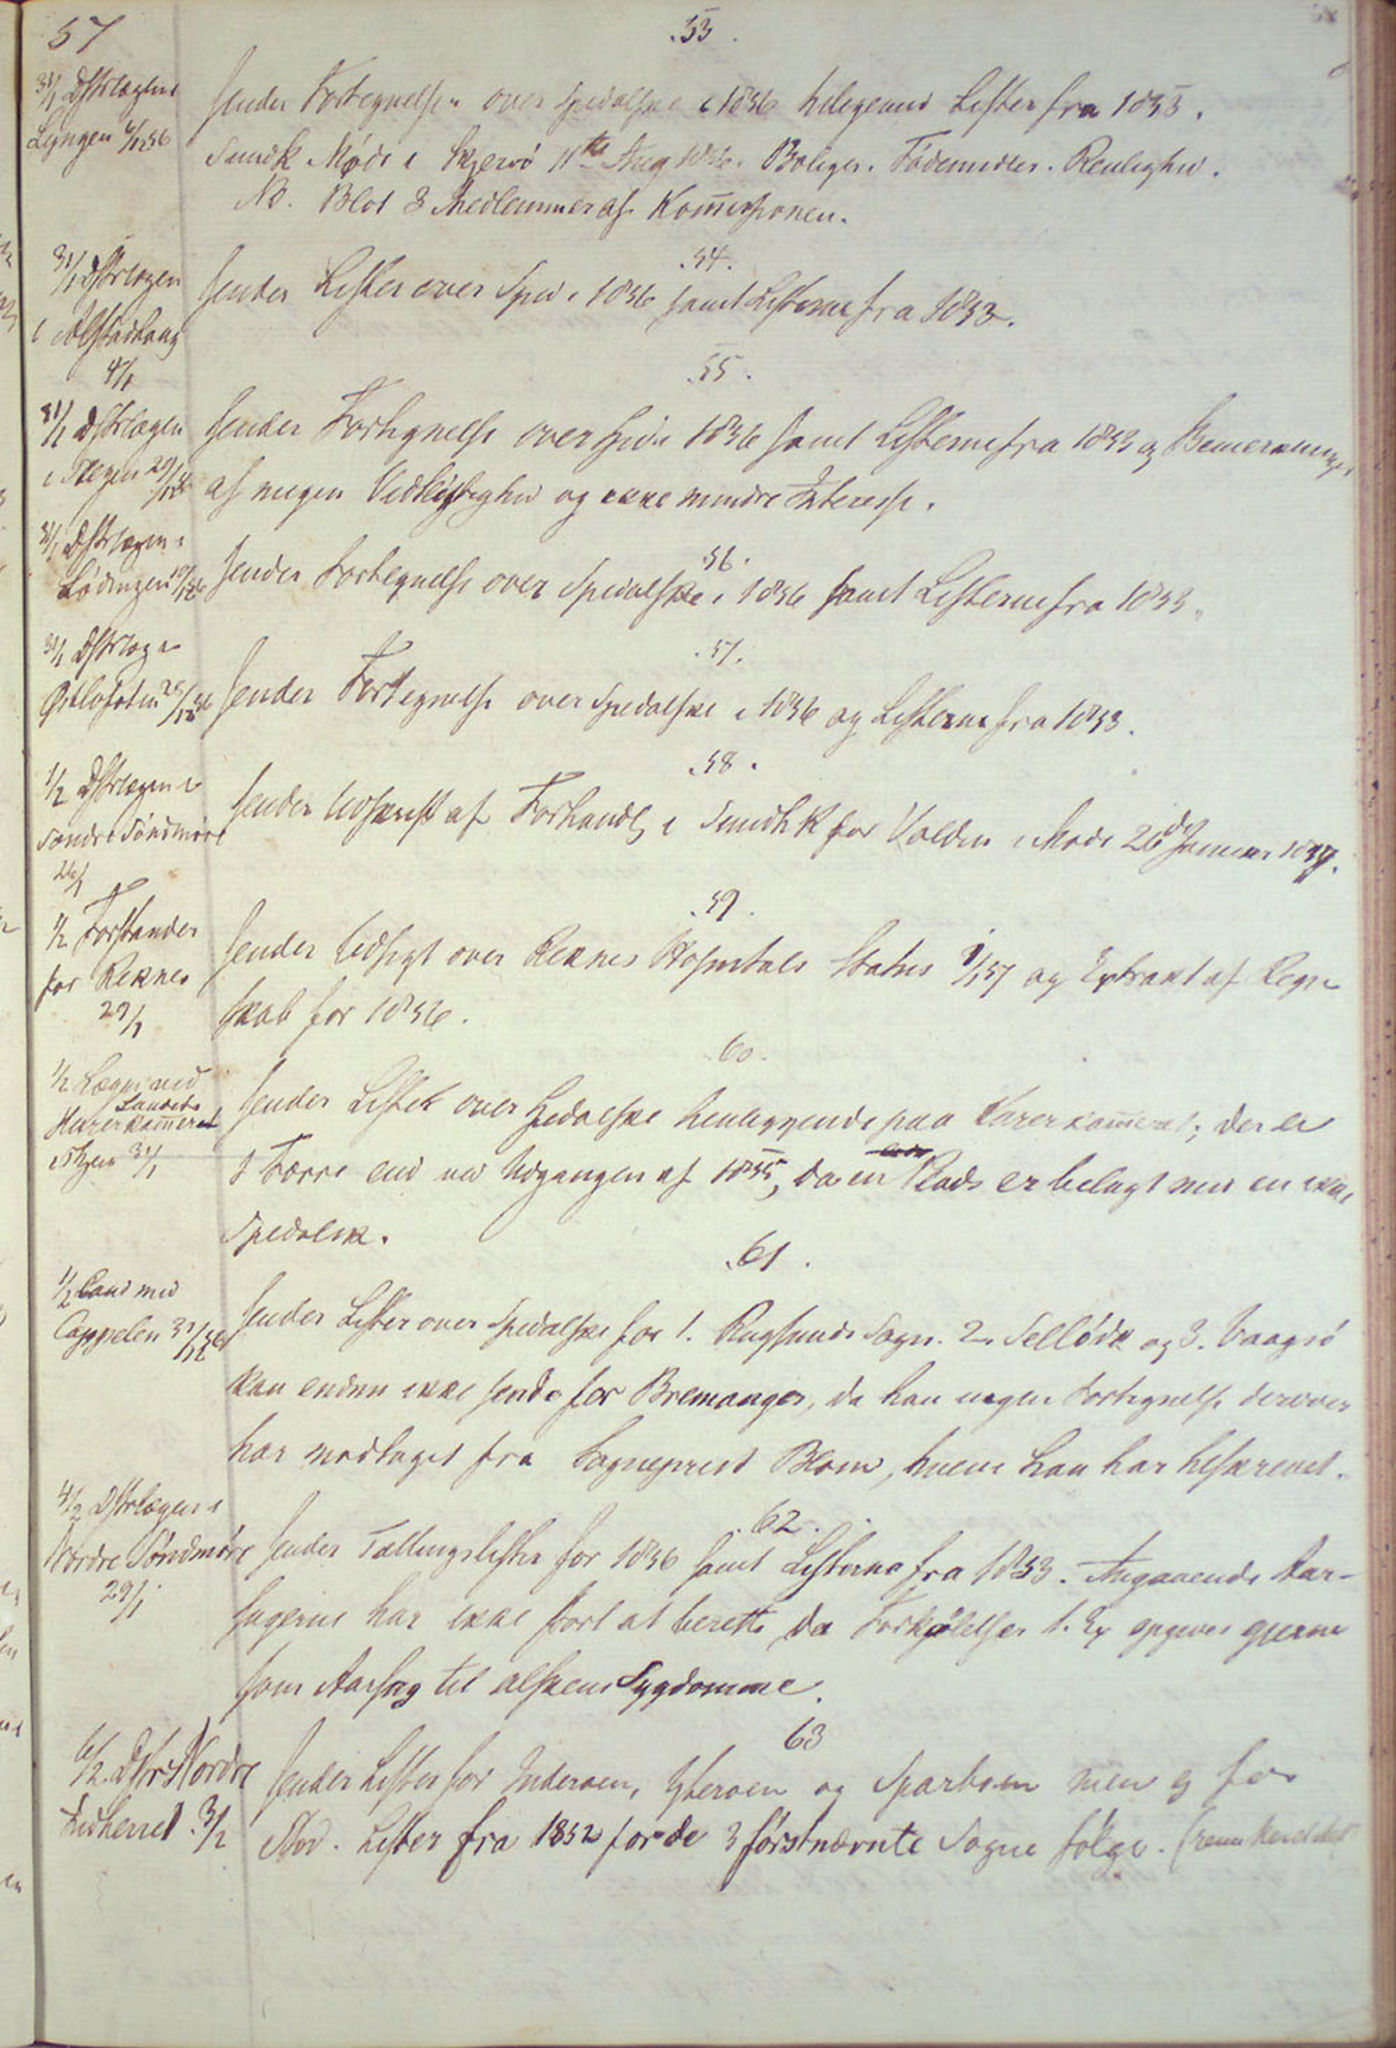 57
.53.
31/1 Dstrlægen i
Lyngen 6/12 56
Sender Fortegnelse over Spedalske i 1856 tilligemed Lister fra 1853.
Sundk Møde i Skjervö 11te Aug 1856. Boliger. Födemidler. Renlighed.
NB. Blot 3 Medlemmer af Kommissionen.
.54.
31/1 Dstrlægen
i Alstadhaug
4/1
Sender Lister over Sped. i 1856 samt Listerne fra 1853.
.55.
31/1 Dstrlægen
i Stegen 29/12 56
Sender Fortegnelse over Sped. i 1856 samt Listerne fra 1853 og Bemerkninger
af megen Vidløftighed og ikke mindre Interesse.
.56.
31/1 Dstrlægen i
Lödingen 19/12 56
Sender Fortegnelse over Spedalske i 1856 samt Listerne fra 1853.
.57.
31/1 Dstrlæg i
Östlofoten 28/12 56
Sender Fortegnelse over Spedalske i 1856 og Listerne fra 1853.
.58.
1/2 Dstrlægen i
Söndre Söndmöre
26/1
Sender Udskrift af Forhandl. i Sundhk for Volden i Møde 26de Januar 1857.
.59.
1/2 Forstander
for Reknes
29/1
Sender Udsigt over Reknes Hospitals Status 1/1 57 og Extrakt af Regn-
skab for 1856.
60.
1/2 Lægen ved
Landets
Kurerkammeret
i Skien 31/1
Sender Liste over Spedalske henliggende paa Kurerkammeret; der er
1 Færre end ved Udgangen af 1855, da en Plads er belagt med en ikke
Spedalsk.
.61.
1/2 Cand med
Cappelen 31/12 56
Sender Lister over Spedalske for 1. Rugsunds Sogn. 2. Selløde og 3. Vaagsö
kan endnu ikke sende for Bremanger, da han ingen Fortegnelse derover
har modtaget fra Sogneprest Blom, hvem han har tilskrevet.
.62.
4/2 Dstrlægen i
Nordre Söndmöre
29/1
Sender Tællingslister for 1856 samt Listerne fra 1853. Angaaende Aar-
sagerne har ikke stort at berette, da Forkjølelser t. Ex opgives gjerne
som Aarsag til alskens Sygdomme.
63
6/2. Dstr i Nordre
Indherred. 3/2
Sender Lister for Inderøen, Ytterøen og Sparboen men ej for
Stod. Lister fra 1852 for de 3 førstnævnte Sogne følge.